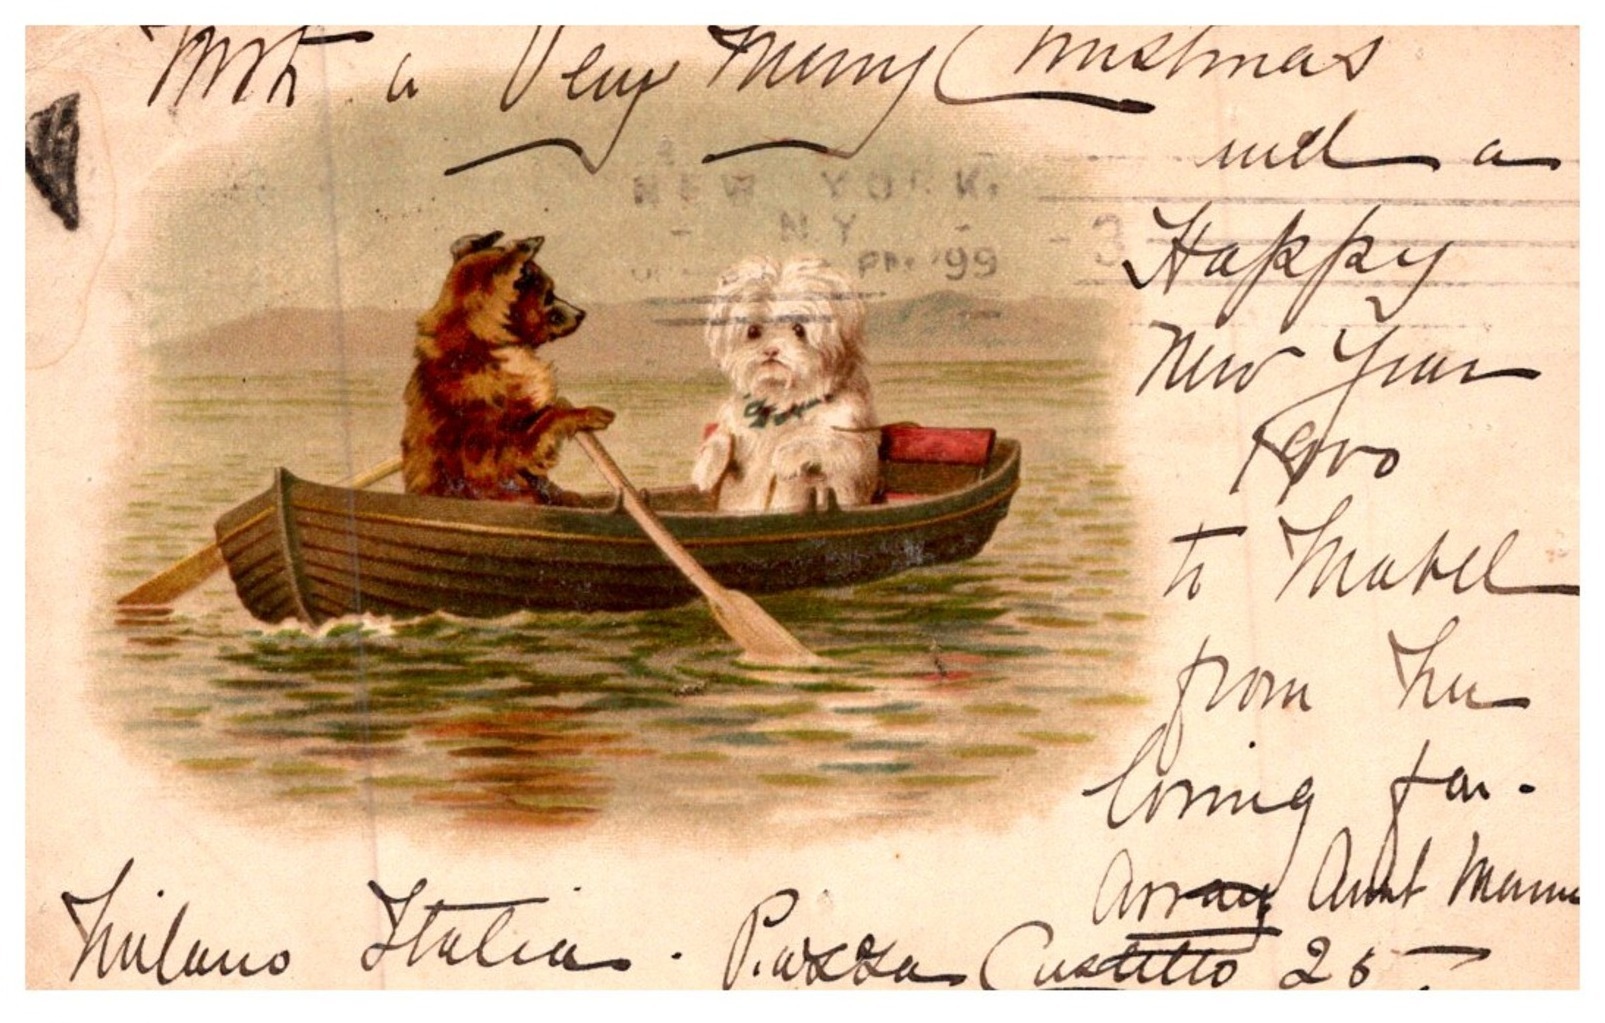 With a Very Merry Christmas
NEW YORK.
N.Y.
'99
3
with a
Happy
New Year
1900
to Mabel
from her
loving far-
away Aunt
Milano Italia. Piazza Castello 26